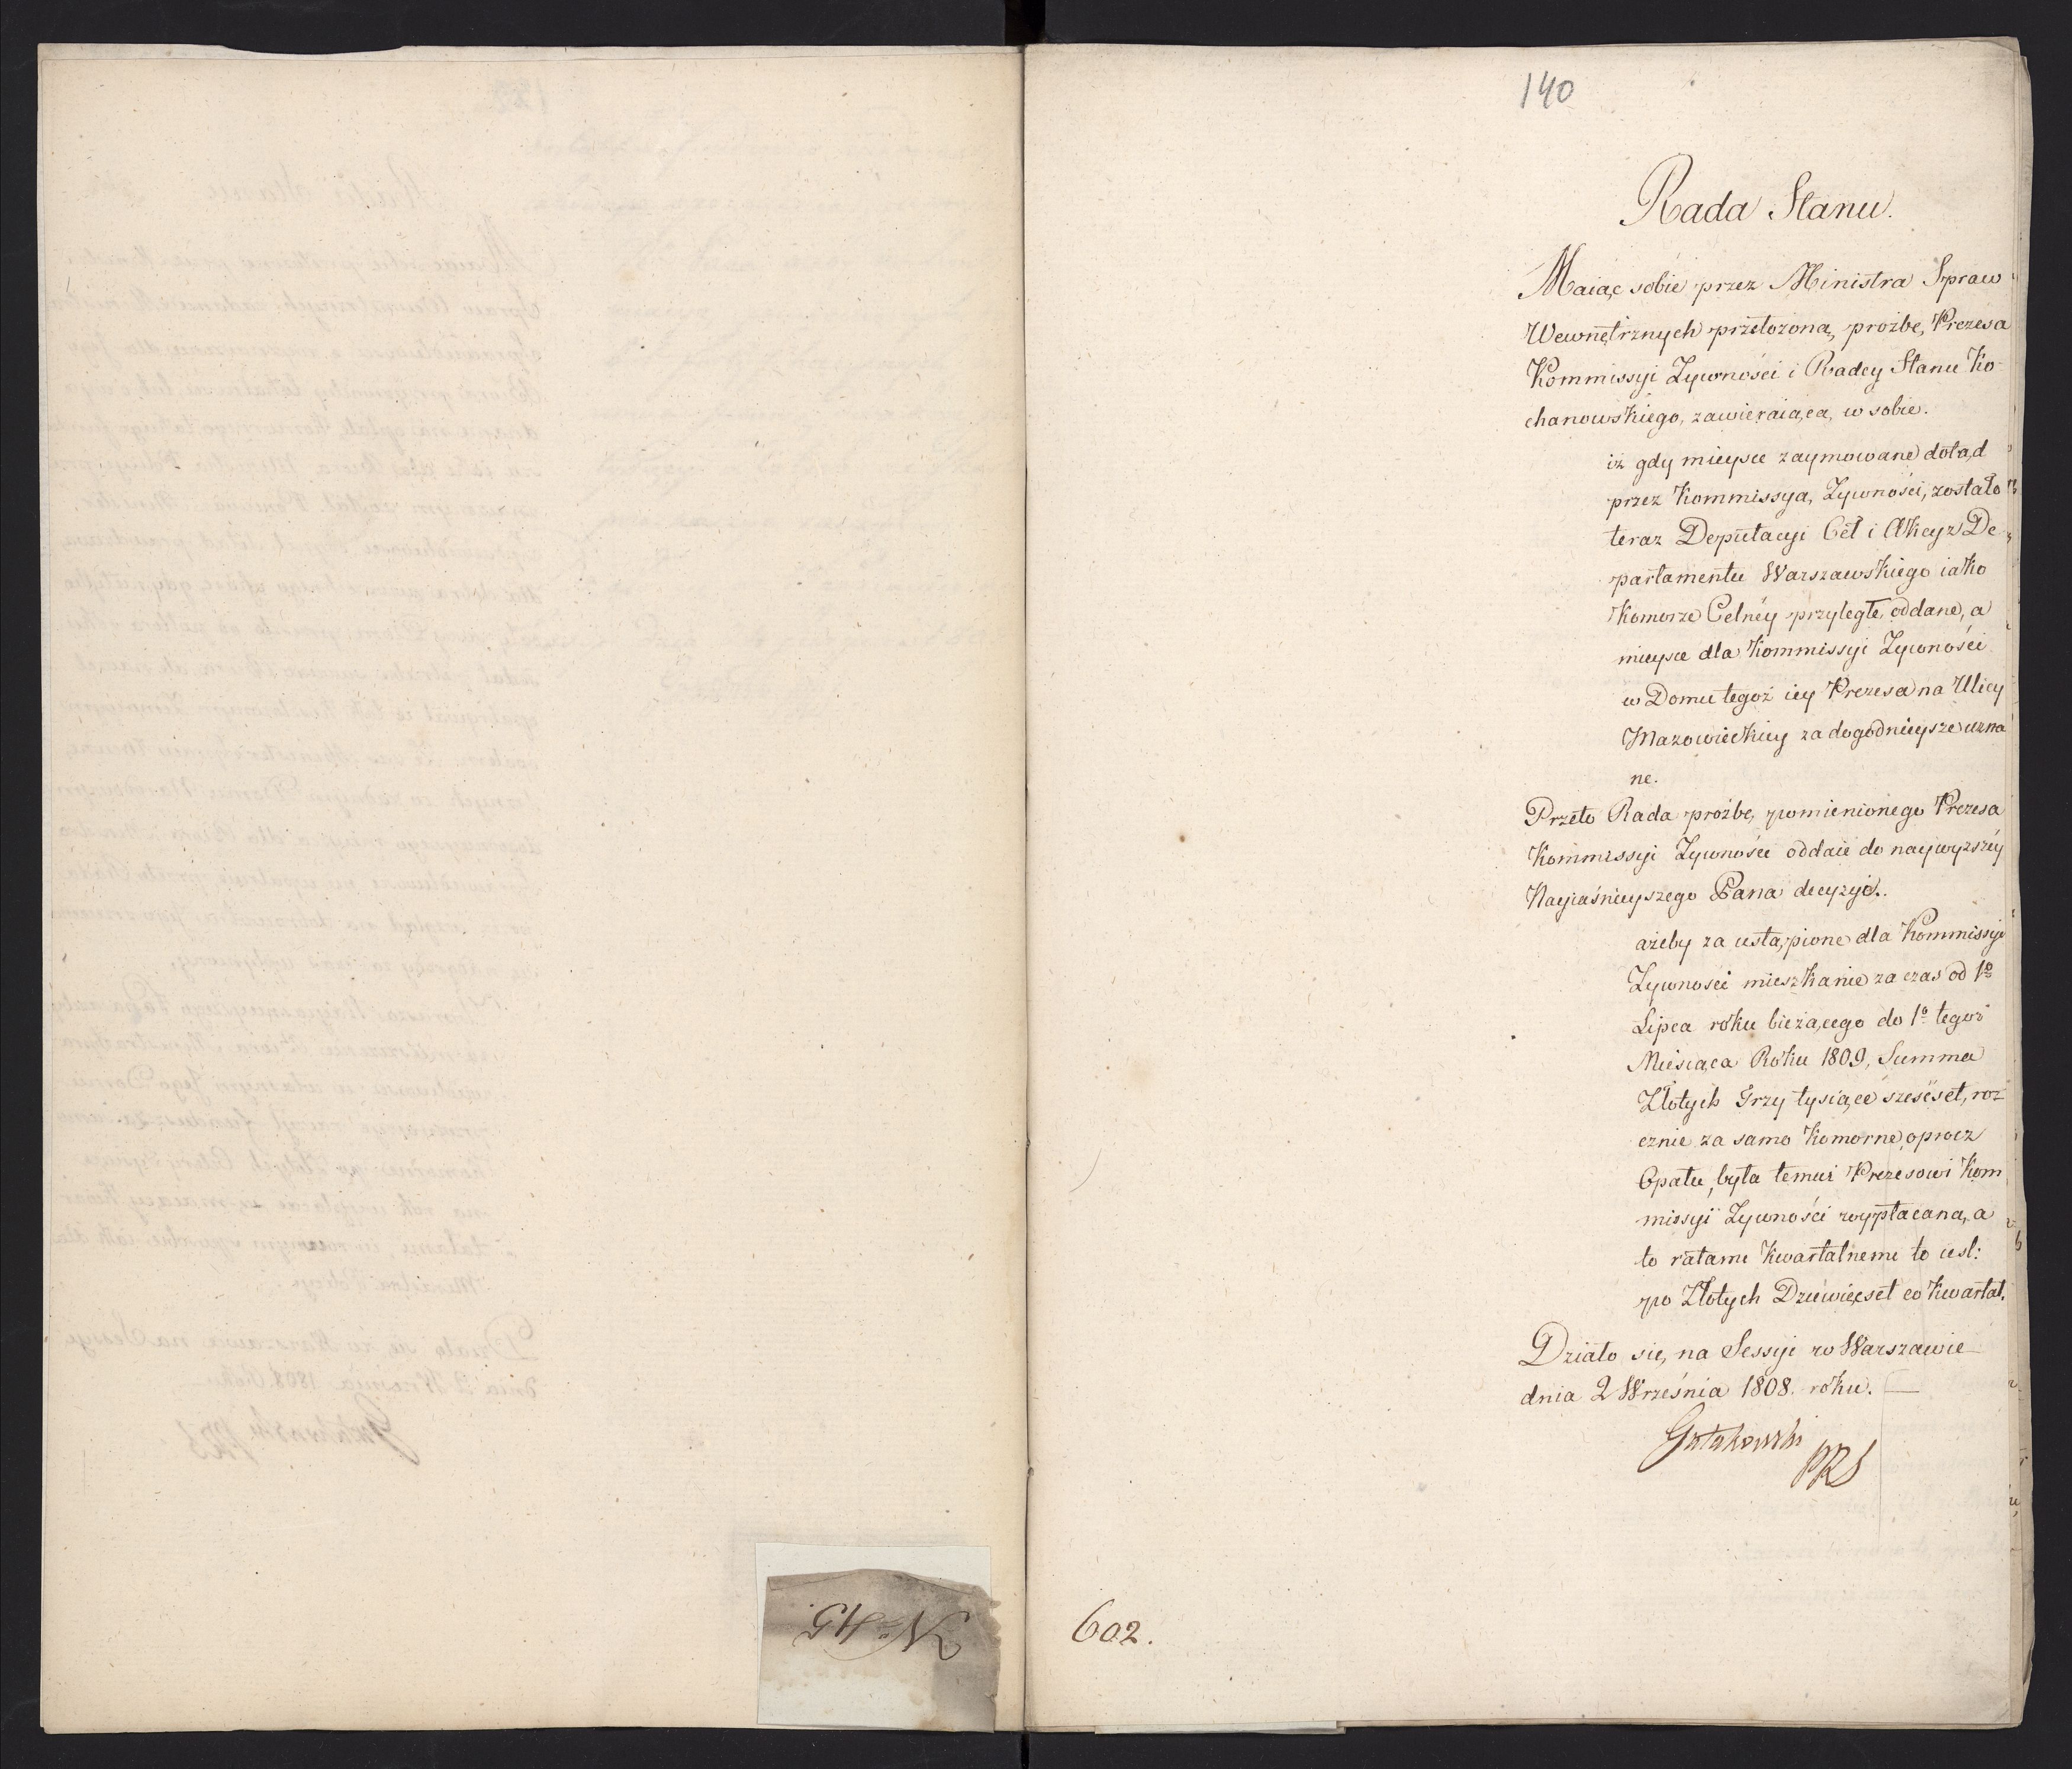 140
Rada Stanu.
Maiąc sobie przez Ministra Spraw
Wewnętrznych przełożoną proźbę Prezesa
Kommissyi Zywności i Radcy Stanu Ko-
chanowskiego, zawieraiącą w sobie.
iż gdy mieysce zaymowane dotąd
przez Kommissyą Zywności, zostało
teraz Deputacyi Ceł i Akcyz De-
partamentu Warszawskiego iako
Komorze Celnéy przyległe oddane, a
mieysce dla Kommissyi Zywności
w Domu tegoż iey Prezesa na Ulicy
Mazowieckiey za dogodnieysze uzna
ne.
Przeto Rada proźbę pomienionego Prezesa
Kommissyi Zywności oddaie do naywyższéy
Nayiaśnieyszego Pana decyzyi.
ażeby za ustąpione dla Kommissyi
Zywności mieszkanie za czas od 1º
Lipca roku bieżącego do 1º tegoż
Miesiąca Roku 1809, Summa
Złotych Trzy tysiące sześćset, ro-
cznie za samo Komorne, oprocz
Opału, była temuż Prezesowi Kom
missyi Zywności wypłacana, a
to ratami Kwartalnemi to iest:
po Złotych Dziewięćset co Kwartał.
Działo się na Sessyi w Warszawie
dnia 2 Września 1808. roku.
Gutakowski
PRS
602.
Nº 45